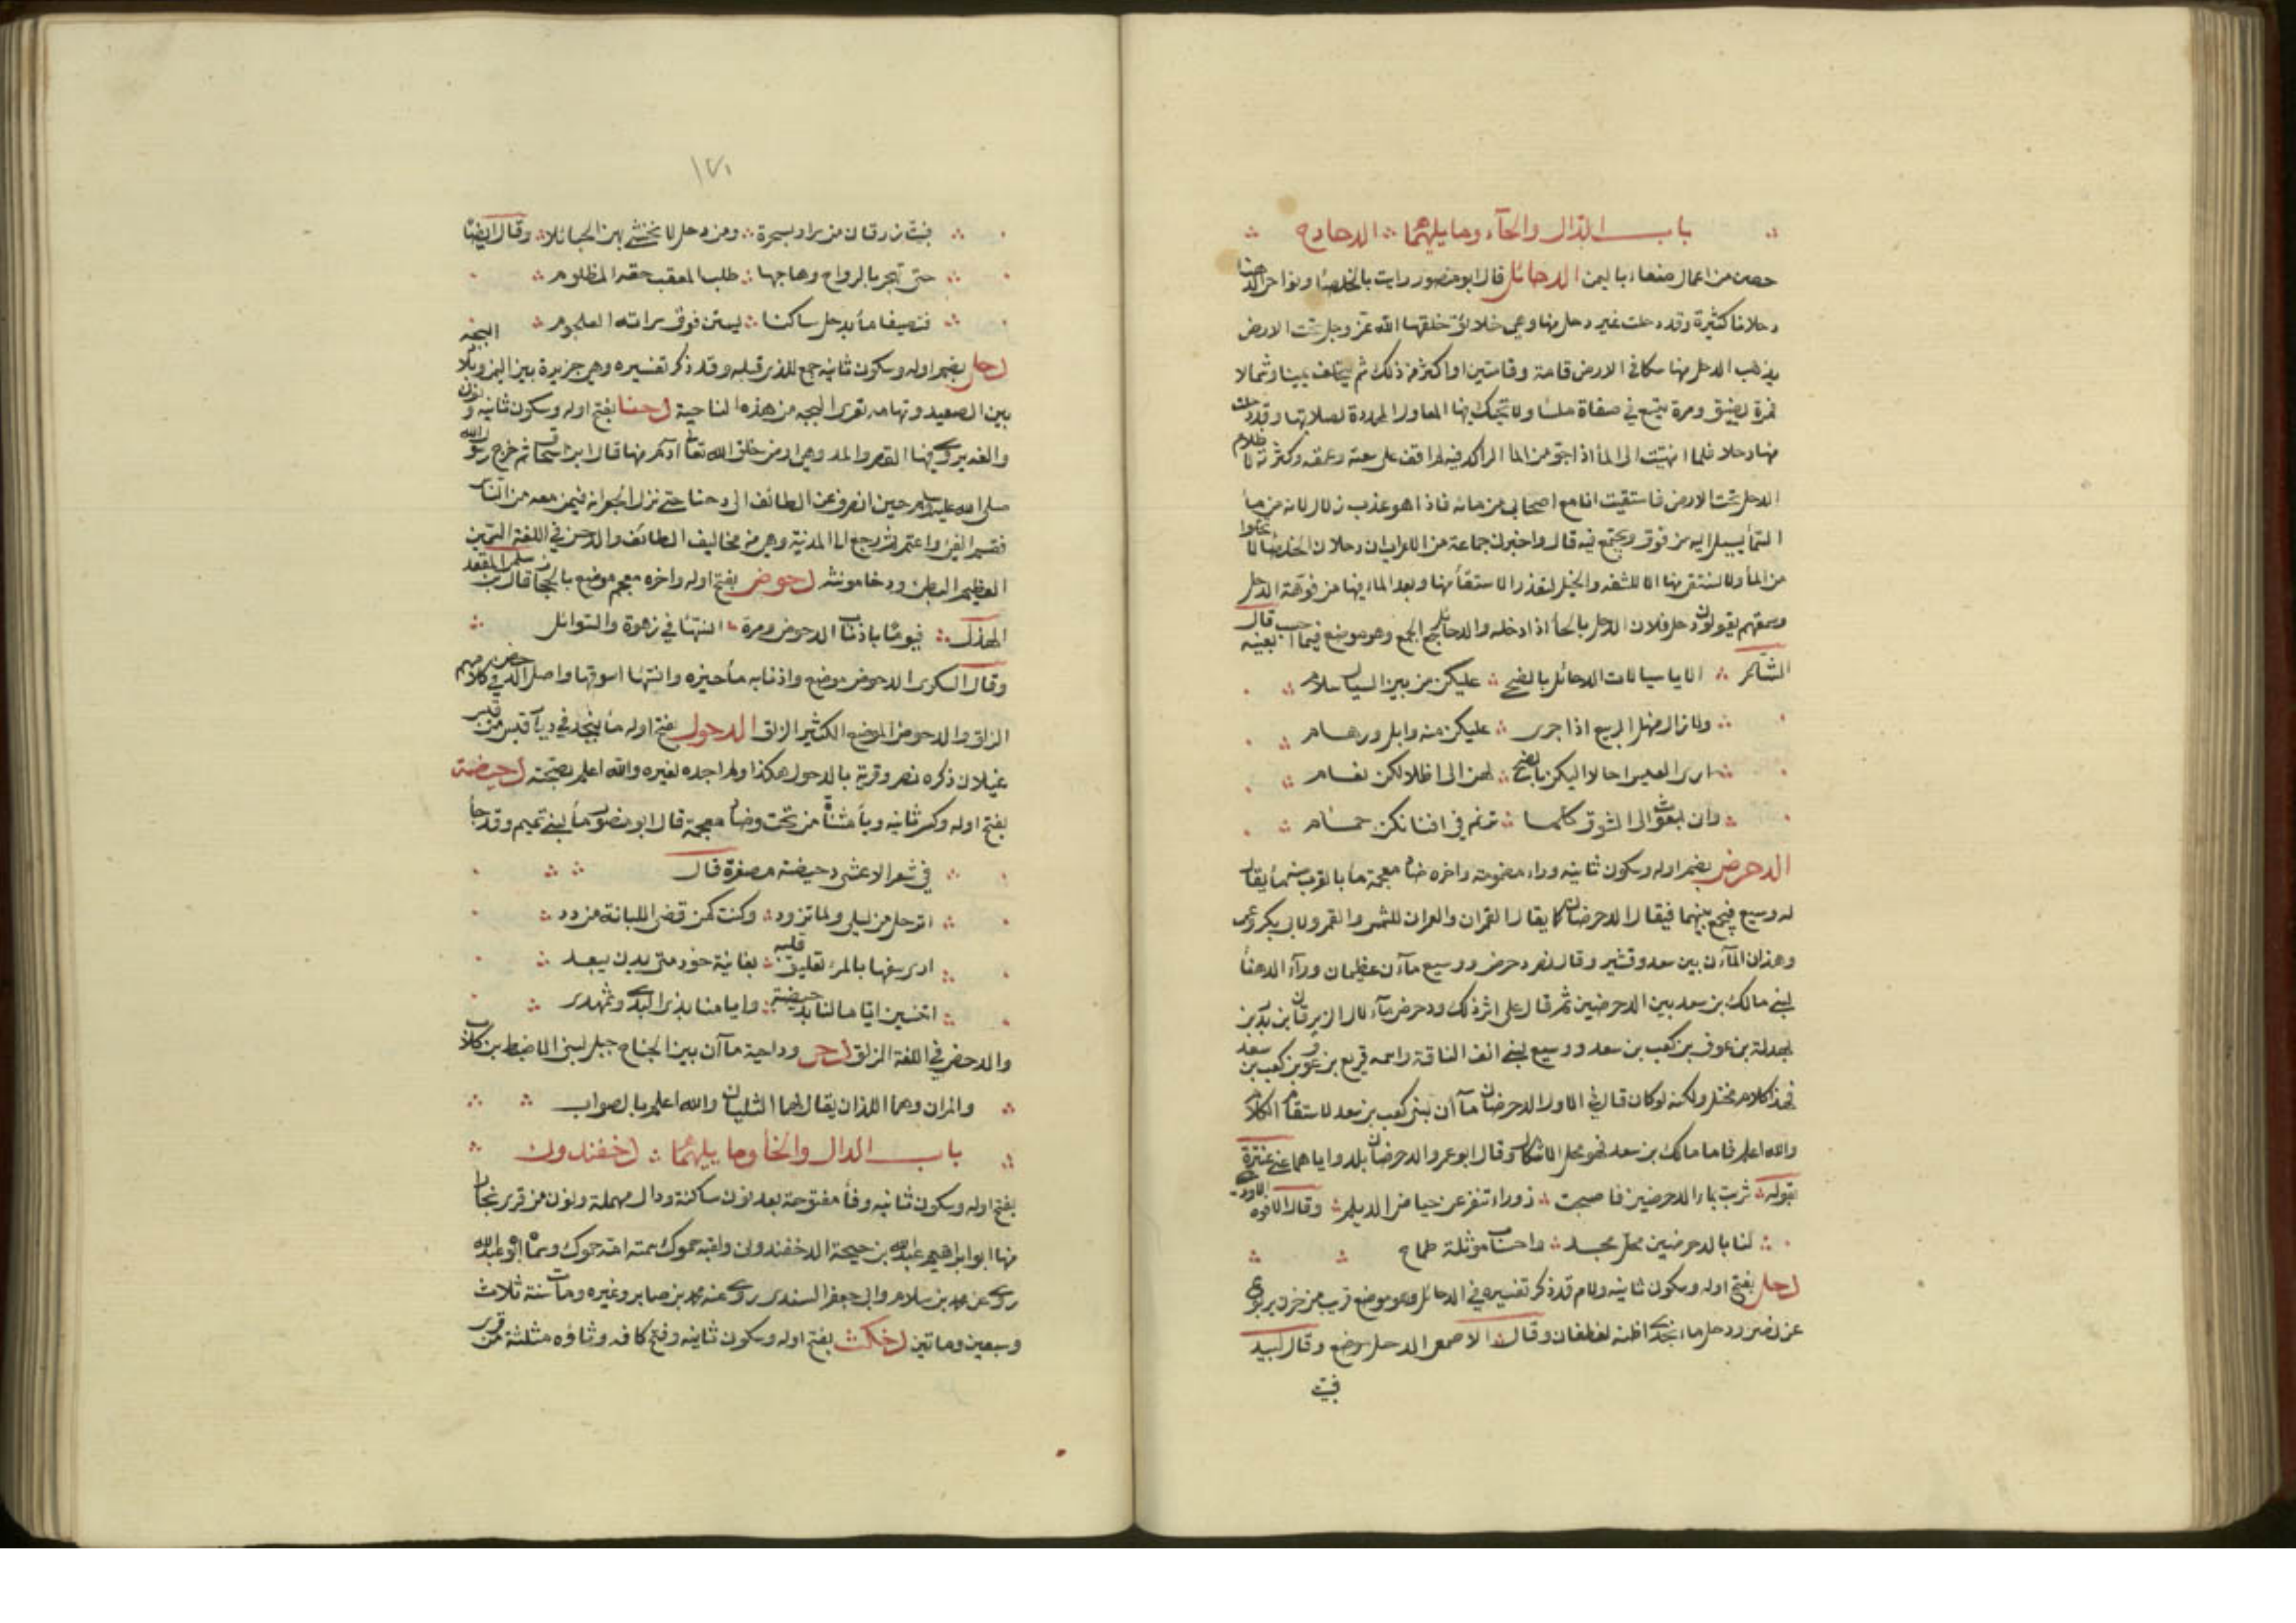 باب الدال والحآء وما يليهما الدحادح
حصن من اعمال صنعاء باليمن الدحائل قال ابو منصور رايت بالخلصاء ونواحي الدهنا
دحلانا كثيرة وقد دخلت غير دحل منها وهي خلائق خلقها الله عز وجل تحت الارض
يذهب الدحل منها سكا في الارض قامة وقامتين او اكثر من ذلك ثم يتلجف يمينا وشمالا
فمرة يضيق ومرة يتسع في صفاة ملسا ولا تحيك فيها المعاول المحددة لصلابتها وقد دخلت
منها دحلا فلما انتهيت الى المأ اذا جو من الما الراكد فيه لم اقف على سعته وعمقه وكثرته لظلام
الدحل تحت الارض فاستقيت انا مع اصحابي من مائه فاذا هو عذب زلال لانه من مأ
السمأ يسيل اليه من فوق ويجتمع فيه قال واخبرني جماعة من الاعراب ان دحلان الخلصا لا تخلوا
من المأ ولا يستقى منها الا للشفه والخيل لتعذر الاستقأ منها وبعد الما فيها من فوهة الدحل
وسمعتهم يقولون دحل فلان الدحل بالحأ اذا دخله والدحائل جمع الجمع وهو موضع فيما احسب بعينه قال
الشاعر الا يا سيالات الدحائل بالضحى عليكن من بين السيال سلام
ولا زال منهل الربيع اذا جرى عليكن منه وابل ورهام
ارى العيس احالا اليكن بالضحى لهن الى اظلالكن بغام
وان لمبعوث الى الشوق كلما ترنم في افنانكن حمام
الدحرض بضم اوله وسكون ثانيه وراء مضمومة واخره ضاد معجمة مأ بالقرب منه مأ يقال
له وسيع فيجمع بينهما فيقال الدحرضان كما يقال القمران والعمران للشمس والقمر ولابي بكر وعمر
وهذان المآآن بين سعد وقشير وقال نصر دحرض ووسيع مآآن عظيمان ورآء الدهنأ
لبني مالك بن سعد بين الدحرضين ثم قال على اثر ذلك ودحرض مآء لال الزبرقان بن بدر بن
بهدلة بن عوف بن كعب بن سعد ووسيع لبني انف الناقة واسمه قريع بن عوف بن كعب بن سعد
فهذا كلام مختل ولكنه لو كان قال في الاول الدحرضان مآآن لبني كعب بن سعد لاستقام الكلام
والله اعلم فاما مالك بن سعد فهو محل الاشكال وقال ابو عمرو الدحرضان بلد واياهما عنى عنترة
بقوله شربت بماء الدحرضين فاصبحت زوراء تنفر عن حياض الديلم وقال الافوه الاودى
لنا بالدحرضين محل مجد واحساب موثلة طماح
دحل بفتح اوله وسكون ثانيه ولام قد ذكر تفسيره في الدحائل وهو موضع قريب من حزن يربوع
عن نصر ودحل ماء نجدى اظنه لغطفان وقال الاصمعي الدحل موضع وقال لبيد
فبيت
١٧١
فبيت زرقان من سرار بسحرة ومن دحل لا نخشى بهن الحبائلا وقال ايضا
حتى تهجر بالرواح وهاجها طلب المعقب حقه المظلوم
فتصيفا مأ بدحل ساكنا يستن فوق سراته العلجوم
دحل بضم اوله وسكون ثانيه جمع للذي قبله وقد ذكر تفسيره وهي جزيرة بين اليمن وبلاد البجه
بين الصعيد وتهامه تغزى البجه من هذه الناحية دحنا بفتح اوله وسكون ثانيه ونون
والفه يروى فيها القصر والمد وهي ارض خلق الله تعا آدم منها قال ابن اسحاق ثم خرج رسول الله
صلى الله عليه وسلم حين انصرف عن الطائف الى دحنا حتى نزل الجعرانه فيمن معه من الناس
فقسم الفئ واعتمر ثم رجع الى المدينة وهي من مخاليف الطائف والدحن في اللغة السمين
العظيم البطن ودحنا مونثه دحوض بفتح اوله واخره معجم موضع بالحجاز قال سلمى بن المقعد
الهذلى فيوما باذناب الدحوض ومرة انسئها في زهوة والسوائل
وقال السكرى الدحوض موضع واذنابه مآخيره وانسئها اسوقها واصل الدحض في كلامهم
الزلق والدحوض الموضع الكثير الزلق الدحول بفتح اوله مأ بنجد في ديار قيس من
غيلان ذكره نصر وقرنه بالدحول هكذا ولم اجده لغيره والله اعلم بصحته دحيضة
بفتح اوله وكسر ثانيه ويأ مثناة من تحت وضاد معجمة قال ابو منصور مأ لبني تميم وقد جأ
في شعر الاعشى دحيضة مصغرة قال
اترحل من ليلى ولما تزود وكنت كمن قضى اللبانة من دد
ارى سفها بالمرء تعليق قلبه بغانية خود متى يدن تبعد
اتنسين اياما لنا بدحيضة وايامنا بذى البدى وثهمد
والدحض في اللغة الزلق دحى وداحية ماآن بين الجناح جبل لبني الاضبط بن كلاب
والمران وهما اللذان يقال لهما التليان والله اعلم بالصواب
باب الدال والخأ وما يليهما دخفندون
بفتح اوله وسكون ثانيه وفأ مفتوحة بعد نون ساكنة ودال مهملة ونون من قرى بخارا
منها ابو ابراهيم عبد الله بن حيحة الدخفندونى ولقبه حموك سمته امه حموك وسماه ابوه عبد الله
روى عن محمد بن سلام وابى جعفر السندى روى عنه محمد بن صابر وغيره ومات سنة ثلاث
وسبعين ومائتين دخكث بفتح اوله وسكون ثانيه وفتح كافه وثاؤه مثلثة من قرى